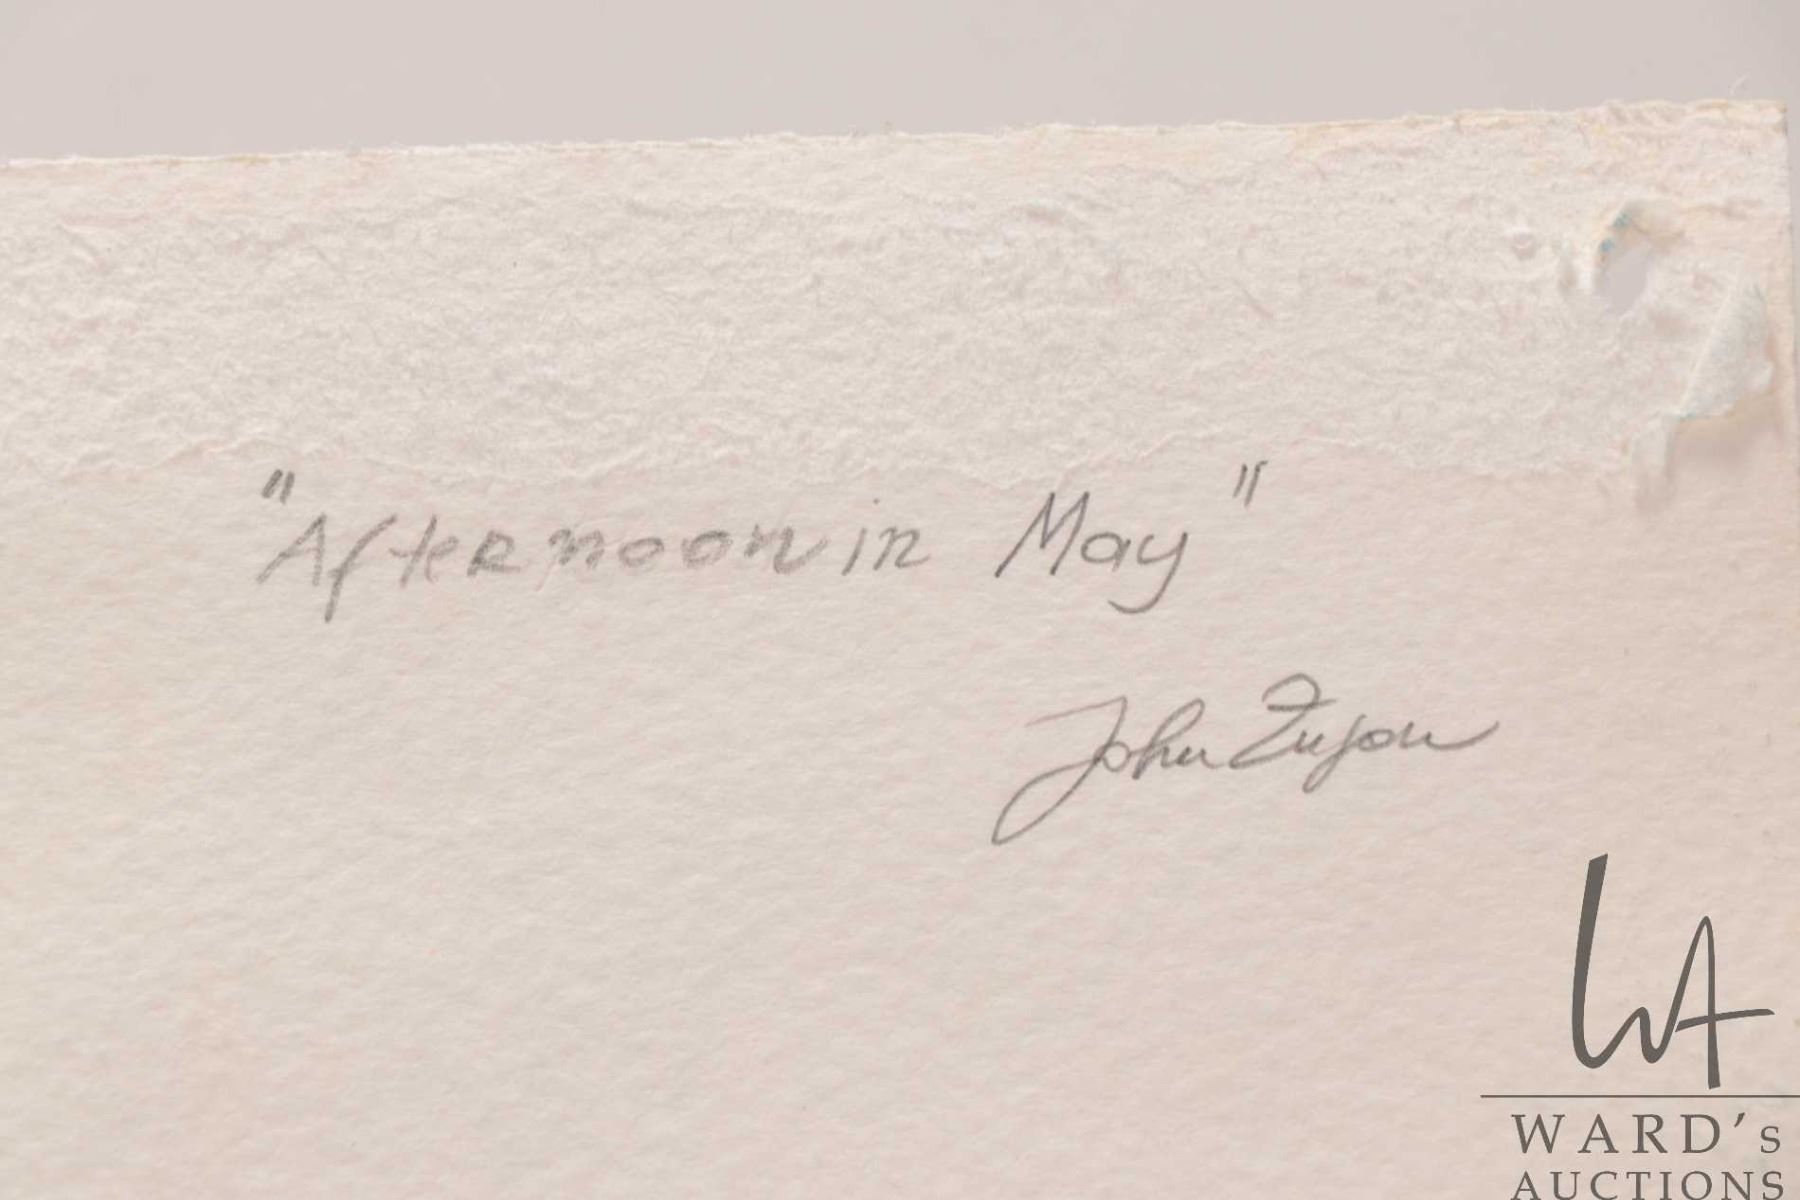 "Afternoon in May"
John Zujou
WA
WARD's
AUCTIONS